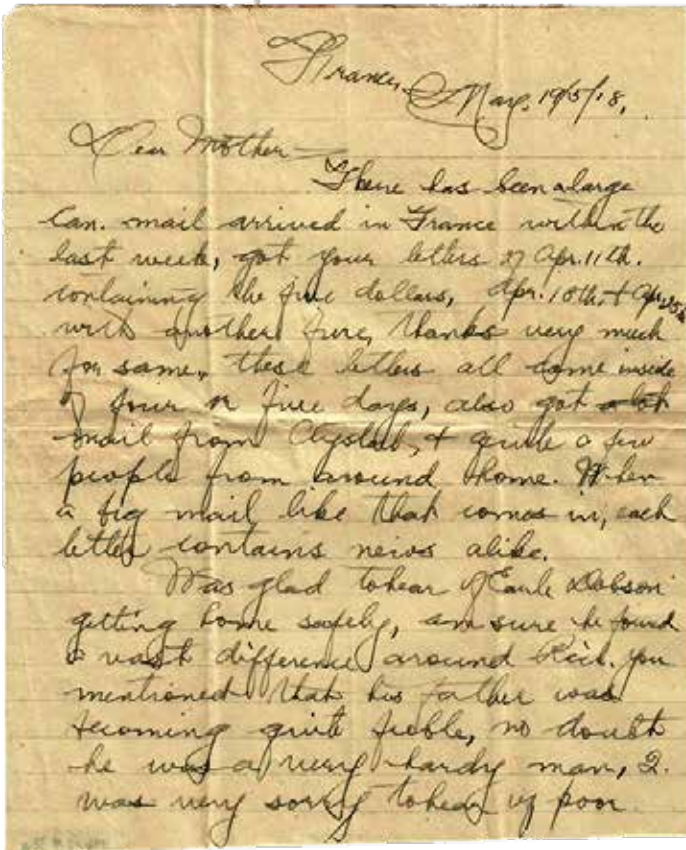 France,
May, 19/5/18,
Dear Mother
There has been a large
Can. mail arrived in France within the
last week, got your letters of Apr. 11th.
containing the five dollars, Apr. 18th, + Apr. 25th
with another five, thanks very much
for same, these letters all came inside
of four or five days, also got a lot
mail from + quite a few
people from around home. When
a big mail like that comes in, each
letter contains news alike.
Was glad to hear of Earle Dobson
getting home safely, am sure he found
a vast difference around Rich. you
mentioned that his father was
becoming quite feeble, no doubt
he was a very hardy man, I.
was very sorry to hear of poor